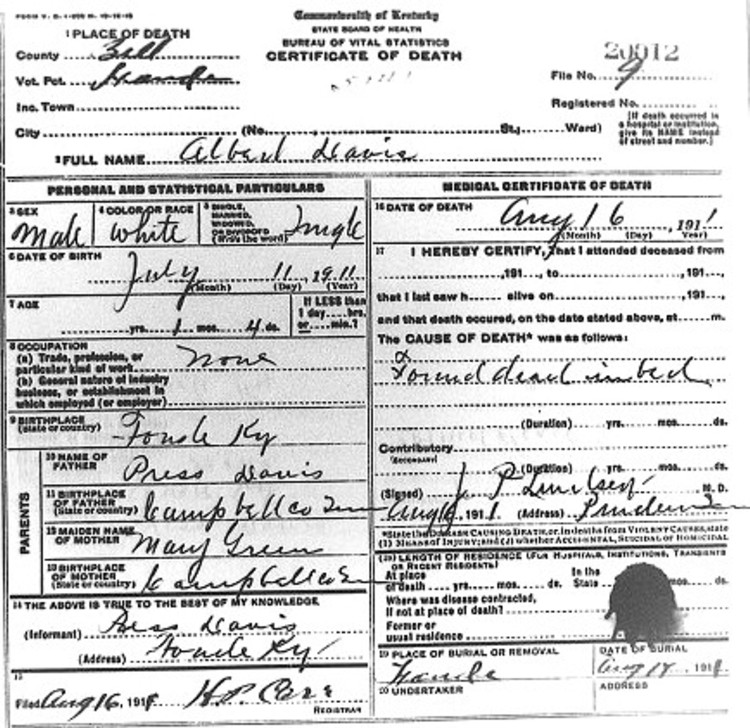 FORM V. S. 1-
Commonwealth of Kentucky
STATE BOARD OF HEALTH
BUREAU OF VITAL STATISTICS
CERTIFICATE OF DEATH
1 PLACE OF DEATH
County Bell
Vot. Pct.
Inc. Town
City (No. St., Ward)
20012
File No. 9
Registered No.
[If death occurred in a hospital or institution, give its NAME instead of street and number.]
2 FULL NAME Albert Davis
PERSONAL AND STATISTICAL PARTICULARS
3 SEX Male
4 COLOR OR RACE White
5 SINGLE, MARRIED, WIDOWED, OR DIVORCED (Write the word) Single
6 DATE OF BIRTH July 11, 1911
(Month) (Day) (Year)
7 AGE
yrs. 1 mos. 4 ds.
If LESS than 1 day....hrs. or....min.?
8 OCCUPATION
(a) Trade, profession, or particular kind of work None
(b) General nature of industry business, or establishment in which employed (or employer)
9 BIRTHPLACE
(State or country) Fonde Ky
PARENTS
10 NAME OF FATHER Press Davis
11 BIRTHPLACE OF FATHER
(State or country) Campbell co Tenn
12 MAIDEN NAME OF MOTHER Mary Green
13 BIRTHPLACE OF MOTHER
(State or country) Campbell co Tenn
14 THE ABOVE IS TRUE TO THE BEST OF MY KNOWLEDGE
(Informant) Press Davis
(Address) Fonde Ky
15
Filed Aug 16, 191
REGISTRAR
MEDICAL CERTIFICATE OF DEATH
16 DATE OF DEATH Aug 16, 1911
(Month) (Day) (Year)
17 I HEREBY CERTIFY, That I attended deceased from
, 191 , to , 191 ,
that I last saw h alive on , 191 ,
and that death occured, on the date stated above, at m.
The CAUSE OF DEATH* was as follows:
Found dead in bed
(Duration) yrs. mos. ds.
Contributory
(SECONDARY)
(Duration) yrs. mos. ds.
(Signed) J. P. M. D.
Aug , 1911 (Address)
*State the DISEASE CAUSING DEATH, or, in deaths from VIOLENT CAUSES, state (1) MEANS OF INJURY; and (2) whether ACCIDENTAL, SUICIDAL or HOMICIDAL
(18) LENGTH OF RESIDENCE (FOR HOSPITALS, INSTITUTIONS, TRANSIENTS OR RECENT RESIDENTS)
At place of death yrs. mos. ds.
In the State
Where was disease contracted, if not at place of death?
Former or usual residence
19 PLACE OF BURIAL OR REMOVAL
DATE OF BURIAL
Aug 17 191
20 UNDERTAKER
ADDRESS